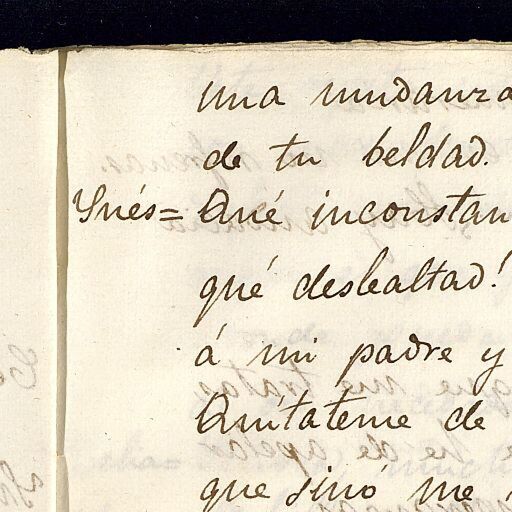 una mudanza
de tu beldad.
Ynés= Qué inconstan
qué deslealtad!
á mi padre y
Quítateme de
que sinó me